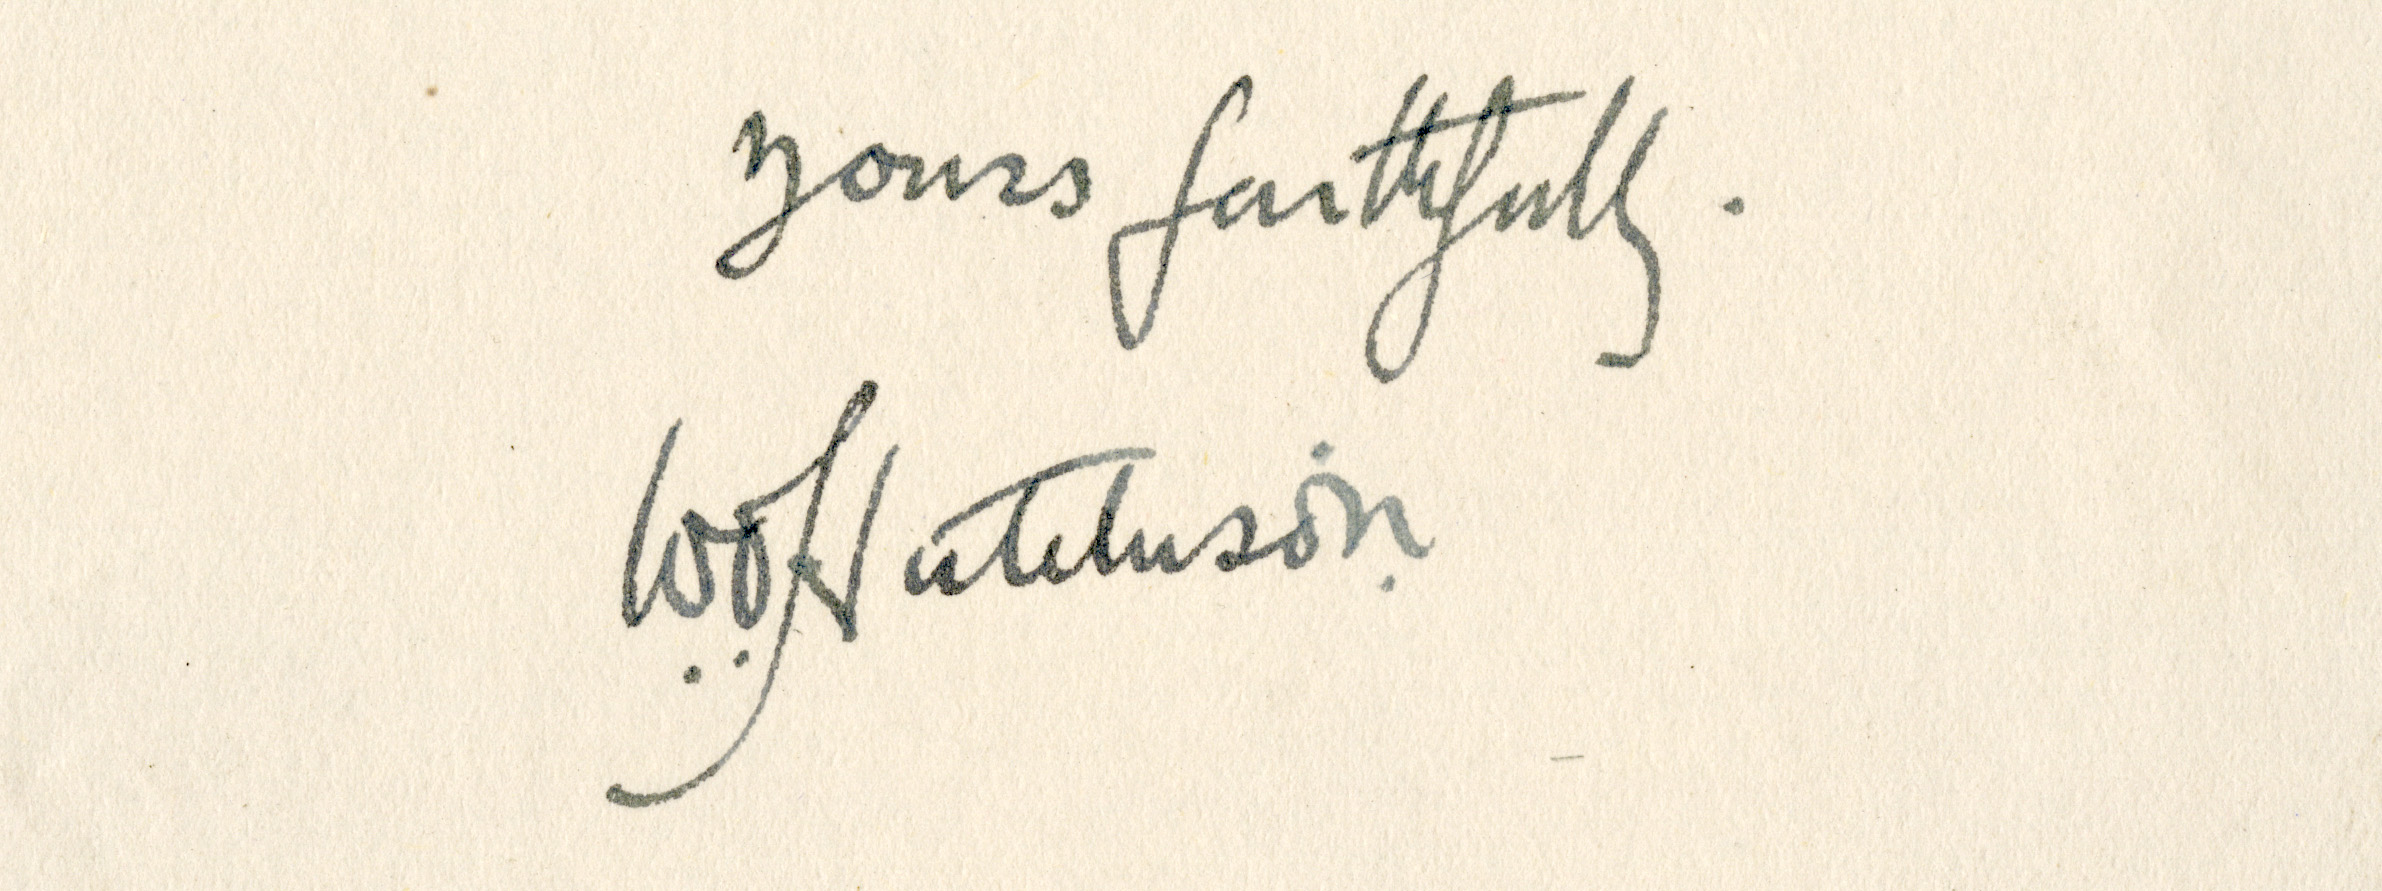 Yours faithfully.
W.O. Hutchinson